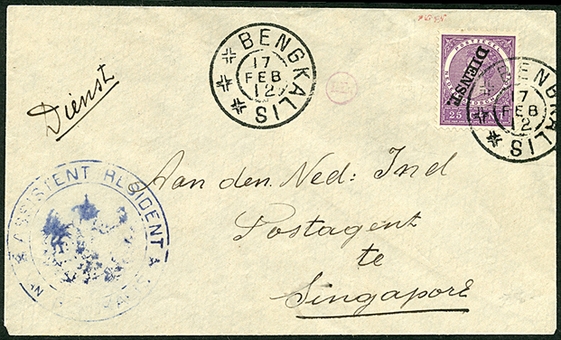 Dienst
BENGKALIS
17
FEB
12
DIENST
25 CENT
BENGKALIS
17
FEB
12
ASSISTENT RESIDENT
Aan den Ned: Ind
Postagent
te
Singapore